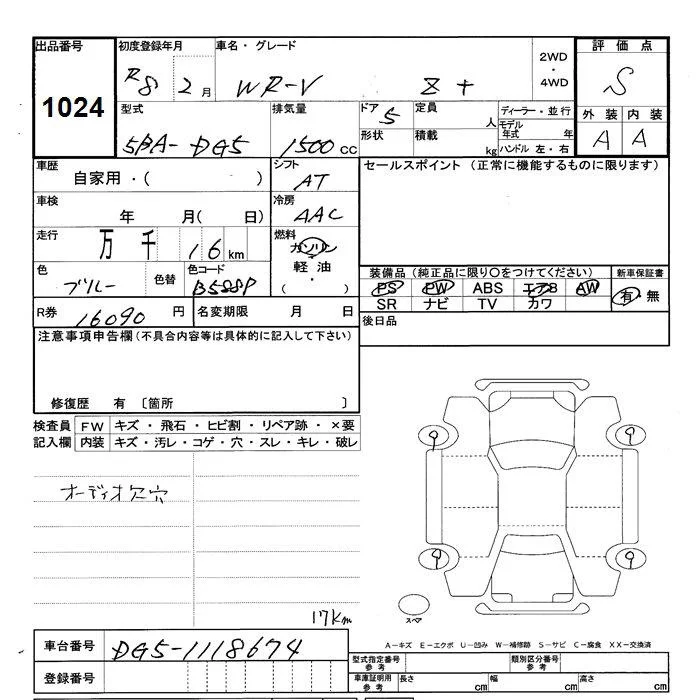 出品番号 初度登録年月 車名・グレード 2WD・4WD 評価点
1024 R8 2月 WR-V Z+ S
型式 排気量 ドア 定員 ディーラー・並行 外装 内装
5BA-DG5 1500cc 5 人 モデル年式 年 A A
形状 積載 kg ハンドル 左・右
車歴 シフト セールスポイント (正常に機能するものに限ります)
自家用・( ) AT
車検 冷房
年 月( 日) AAC
走行 燃料
万 千 16 km ガソリン
軽油・( )
色 色替 色コード 装備品 (純正品に限り○をつけてください) 新車保証書
ブルー B588P PS PW ABS エアB AW 有・無
SR ナビ TV カワ
R券 16090円 名変期限 月 日 後日品
注意事項申告欄 (不具合内容等は具体的に記入して下さい)
修復歴 有 〔箇所 〕
検査員 FW キズ・飛石・ヒビ割・リペア跡・×要
記入欄 内装 キズ・汚レ・コゲ・穴・スレ・キレ・破レ
オーディオ欠穴
9 9
9 9
スペア
17km
A-キズ E-エクボ U-凹み W-補修跡 S-サビ C-腐食 XX-交換済
車台番号 DG5-1118674
型式指定番号 参考 類別区分番号 参考
登録番号
車庫証明用 参考 長さ cm 幅 cm 高さ cm